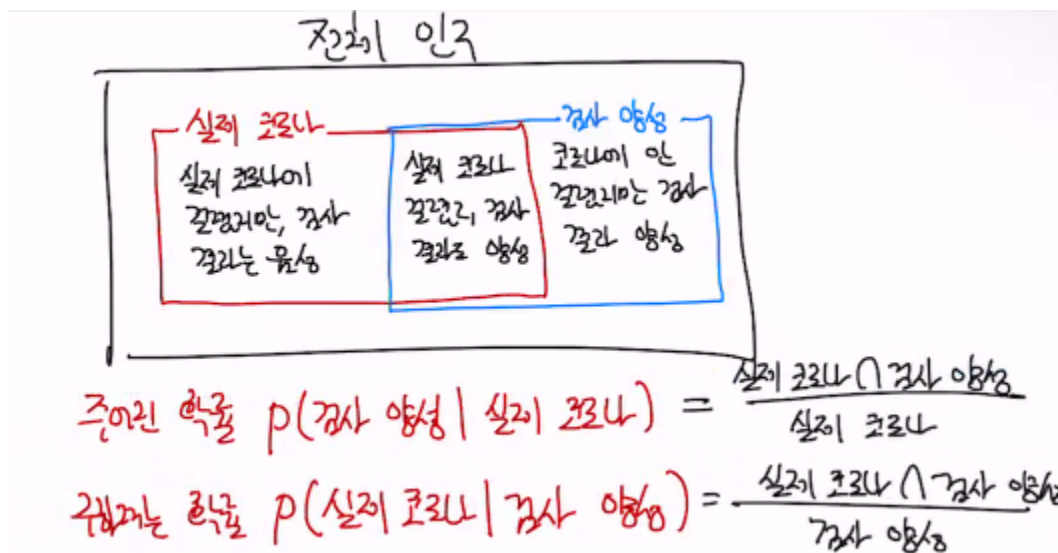 전체 인구
실제 코로나
검사 양성
실제 코로나에
걸렸지만, 검사
결과는 음성
실제 코로나
걸렸고, 검사
결과도 양성
코로나에 안
걸렸지만 검사
결과 양성
주어진 확률 p(검사 양성 | 실제 코로나) = 실제 코로나 ∩ 검사 양성
실제 코로나
구하려는 확률 p(실제 코로나 | 검사 양성) = 실제 코로나 ∩ 검사 양성
검사 양성